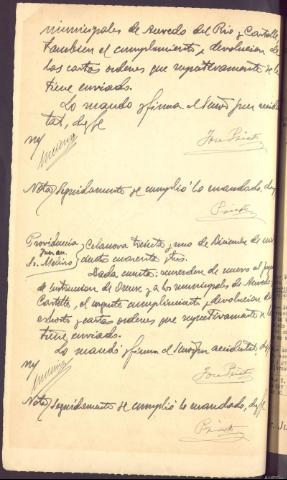 municipales de Acevedo del Rio y Cartelle
tambien el cumplimiento y devolucion de
las cartas ordenes que repetivamente se le
tiene enviados.
Lo mando y firma el Señor juez accidental
tal, doy fe
M/
Jose Prieto
Nota/ Seguidamente se cumplio lo mandado, doy fe
Prieto
Providencia
Juez
Sr. Molino
Celanova treinta y uno de Diciembre de mil
cuarenta y tres.
Dada cuenta: recuerden de nuevo al Juzgado
de instruccion de Orense y a los municipales de Acevedo
Cartelle, el urgente cumplimiento y devolucion de
exhorto y cartas ordenes que repetivamente se le
tiene enviados.
Lo mandó y firma el Señor Juez accidental, doy fe
M/
Jose Prieto
Nota/ Seguidamente se cumplio lo mandado, doy fe
Prieto